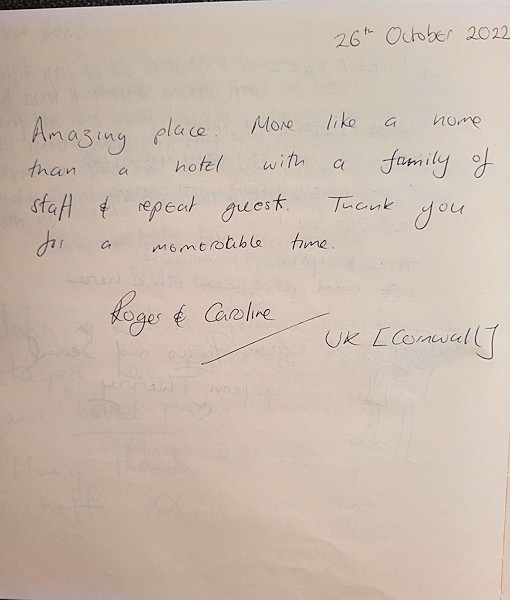 26th October 2022
Amazing place. More like a home
than a hotel with a family of
staff & repeat guest. Thank you
for a momerotable time.
Roger & Caroline
UK [Cornwall]